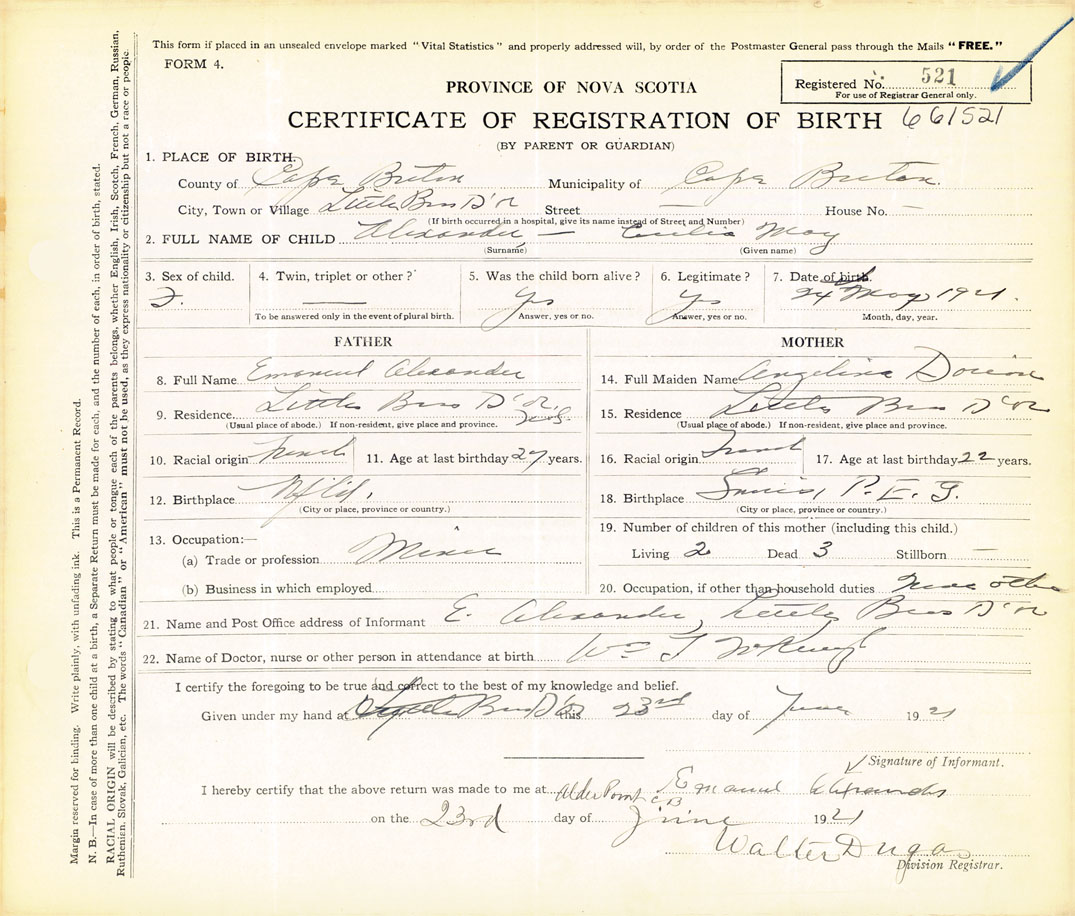 This form if placed in an unsealed envelope marked "Vital Statistics" and properly addressed will, by order of the Postmaster General pass through the Mails "FREE."
FORM 4.
Registered No. 521
For use of Registrar General only.
PROVINCE OF NOVA SCOTIA
CERTIFICATE OF REGISTRATION OF BIRTH 661521
(BY PARENT OR GUARDIAN)
1. PLACE OF BIRTH.
County of Cape Breton Municipality of Cape Breton.
City, Town or Village Little Bras D'or Street — House No. —
(If birth occurred in a hospital, give its name instead of Street and Number)
2. FULL NAME OF CHILD Alexander — Cecilia May
(Surname) (Given name)
3. Sex of child. 4. Twin, triplet or other? 5. Was the child born alive? 6. Legitimate? 7. Date of birth.
F. — Yes Yes 24 May 1921.
To be answered only in the event of plural birth. Answer, yes or no. Answer, yes or no. Month, day, year.
FATHER
8. Full Name Emanuel Alexander
9. Residence Little Bras D'or,
(Usual place of abode.) If non-resident, give place and province.
10. Racial origin French 11. Age at last birthday 27 years.
12. Birthplace Nfld.
(City or place, province or country.)
13. Occupation:—
(a) Trade or profession Miner
(b) Business in which employed
MOTHER
14. Full Maiden Name Angelina
15. Residence Little Bras D'or
(Usual place of abode.) If non-resident, give place and province.
16. Racial origin French 17. Age at last birthday 22 years.
18. Birthplace P. E. I.
(City or place, province or country.)
19. Number of children of this mother (including this child.)
Living 2 Dead 3 Stillborn —
20. Occupation, if other than household duties None other
21. Name and Post Office address of Informant E. Alexander, Little Bras D'or
22. Name of Doctor, nurse or other person in attendance at birth Wm J
I certify the foregoing to be true and correct to the best of my knowledge and belief.
Given under my hand at Little Bras D'or this 23rd day of June 1921
Signature of Informant.
I hereby certify that the above return was made to me at Alder Point C B Emanuel Alexander
on the 23rd day of June 1921
Walter Dugas
Division Registrar.
Margin reserved for binding. Write plainly, with unfading ink. This is a Permanent Record.
N. B.—In case of more than one child at a birth, a Separate Return must be made for each, and the number of each, in order of birth, stated.
RACIAL ORIGIN will be described by stating to what people or tongue each of the parents belongs, whether English, Irish, Scotch, French, German, Russian,
Ruthenian, Slovak, Galician, etc. The words "Canadian" or "American" must not be used, as they express nationality or citizenship but not a race or people.